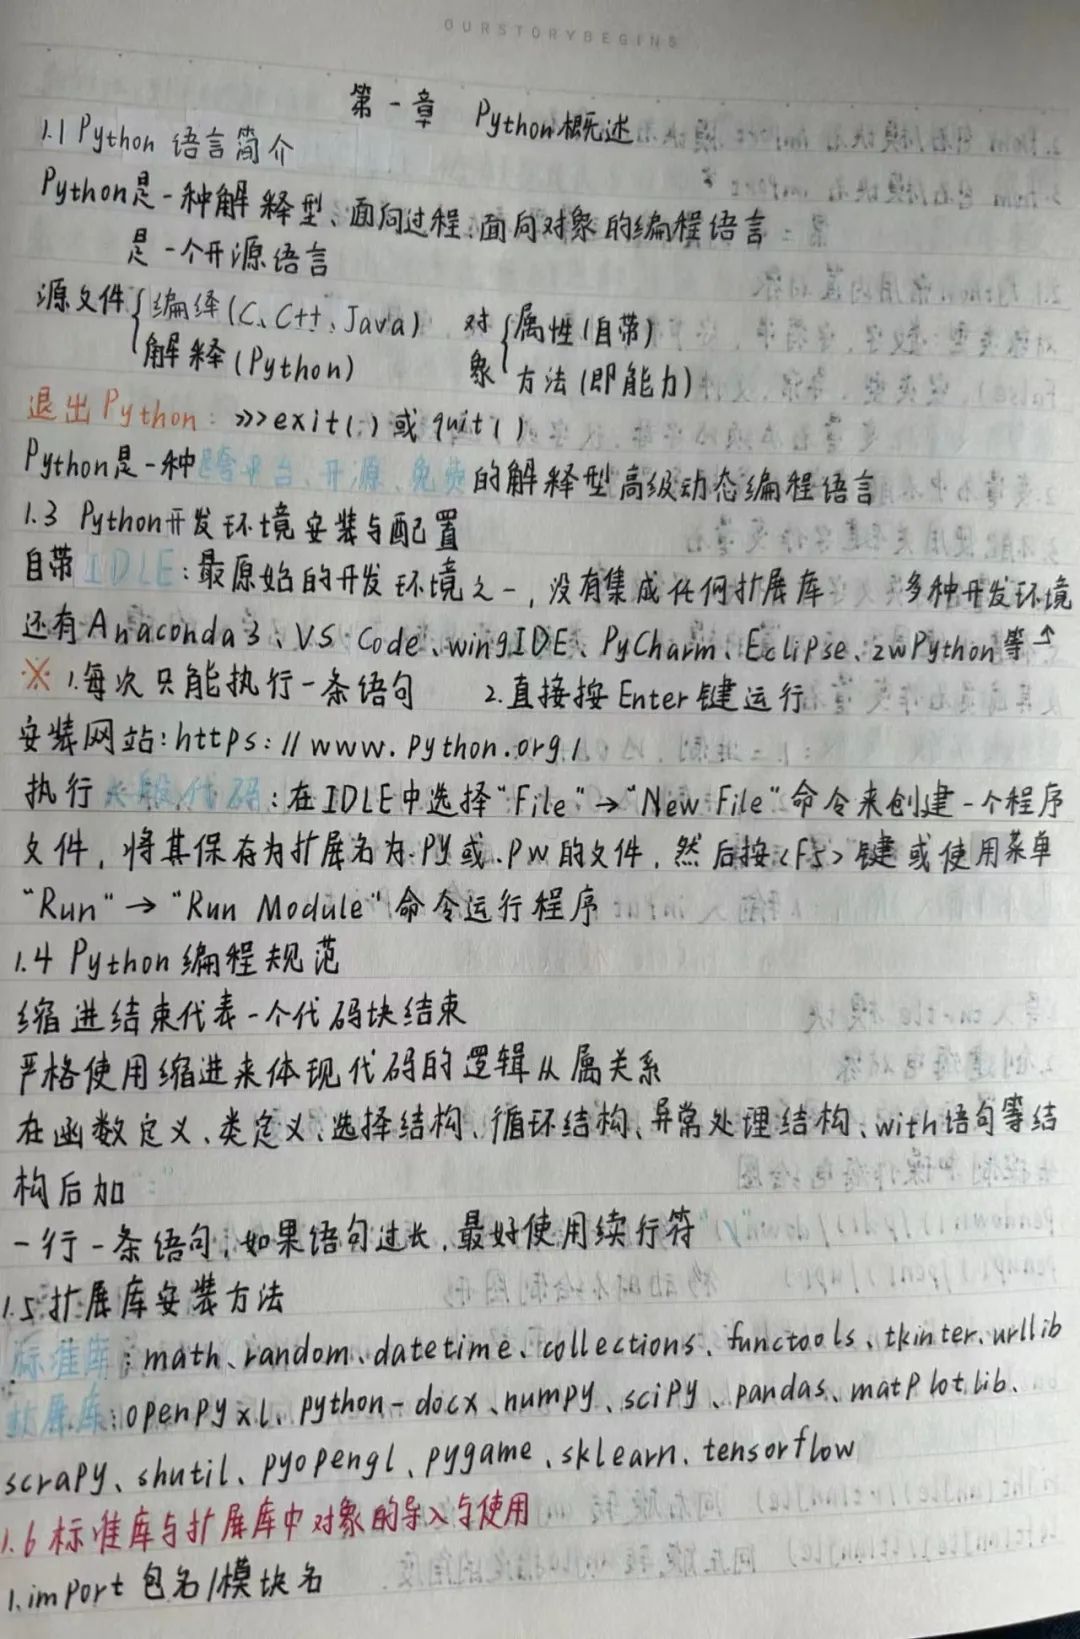 OURSTORYBEGINS
第一章 Python概述
1.1 Python 语言简介
Python是一种解释型、面向过程、面向对象的编程语言
是一个开源语言
源文件{编绎(C、C++、Java) 对象{属性(自带)
解释(Python) 方法(即能力)
退出Python: >>>exit() 或 quit()
Python是一种跨平台、开源、免费的解释型高级动态编程语言
1.3 Python开发环境安装与配置
自带IDLE:最原始的开发环境之一,没有集成任何扩展库 多种开发环境
还有Anaconda3、VS Code、wingIDE、PyCharm、Eclipse、zwPython等↑
※ 1.每次只能执行一条语句 2.直接按Enter键运行
安装网站:https://www.python.org/
执行大段代码:在IDLE中选择"File"→"New File"命令来创建一个程序
文件,将其保存为扩展名为.py或.pw的文件,然后按<F5>键或使用菜单
"Run"→"Run Module"命令运行程序
1.4 Python编程规范
缩进结束代表一个代码块结束
严格使用缩进来体现代码的逻辑从属关系
在函数定义、类定义、选择结构、循环结构、异常处理结构、with语句等结
构后加":"
一行一条语句,如果语句过长,最好使用续行符
1.5 扩展库安装方法
标准库:math、random、datetime、collections、functools、tkinter、urllib
扩展库:openpyxl、python-docx、numpy、scipy、pandas、matplotlib、
scrapy、shutil、pyopengl、pygame、sklearn、tensorflow
1.6 标准库与扩展库中对象的导入与使用
1.import 包名/模块名